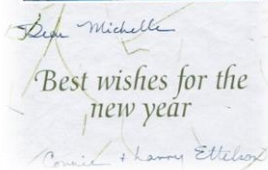 Dear Michelle
Best wishes for the
new year
Connie + Larry Ettelson